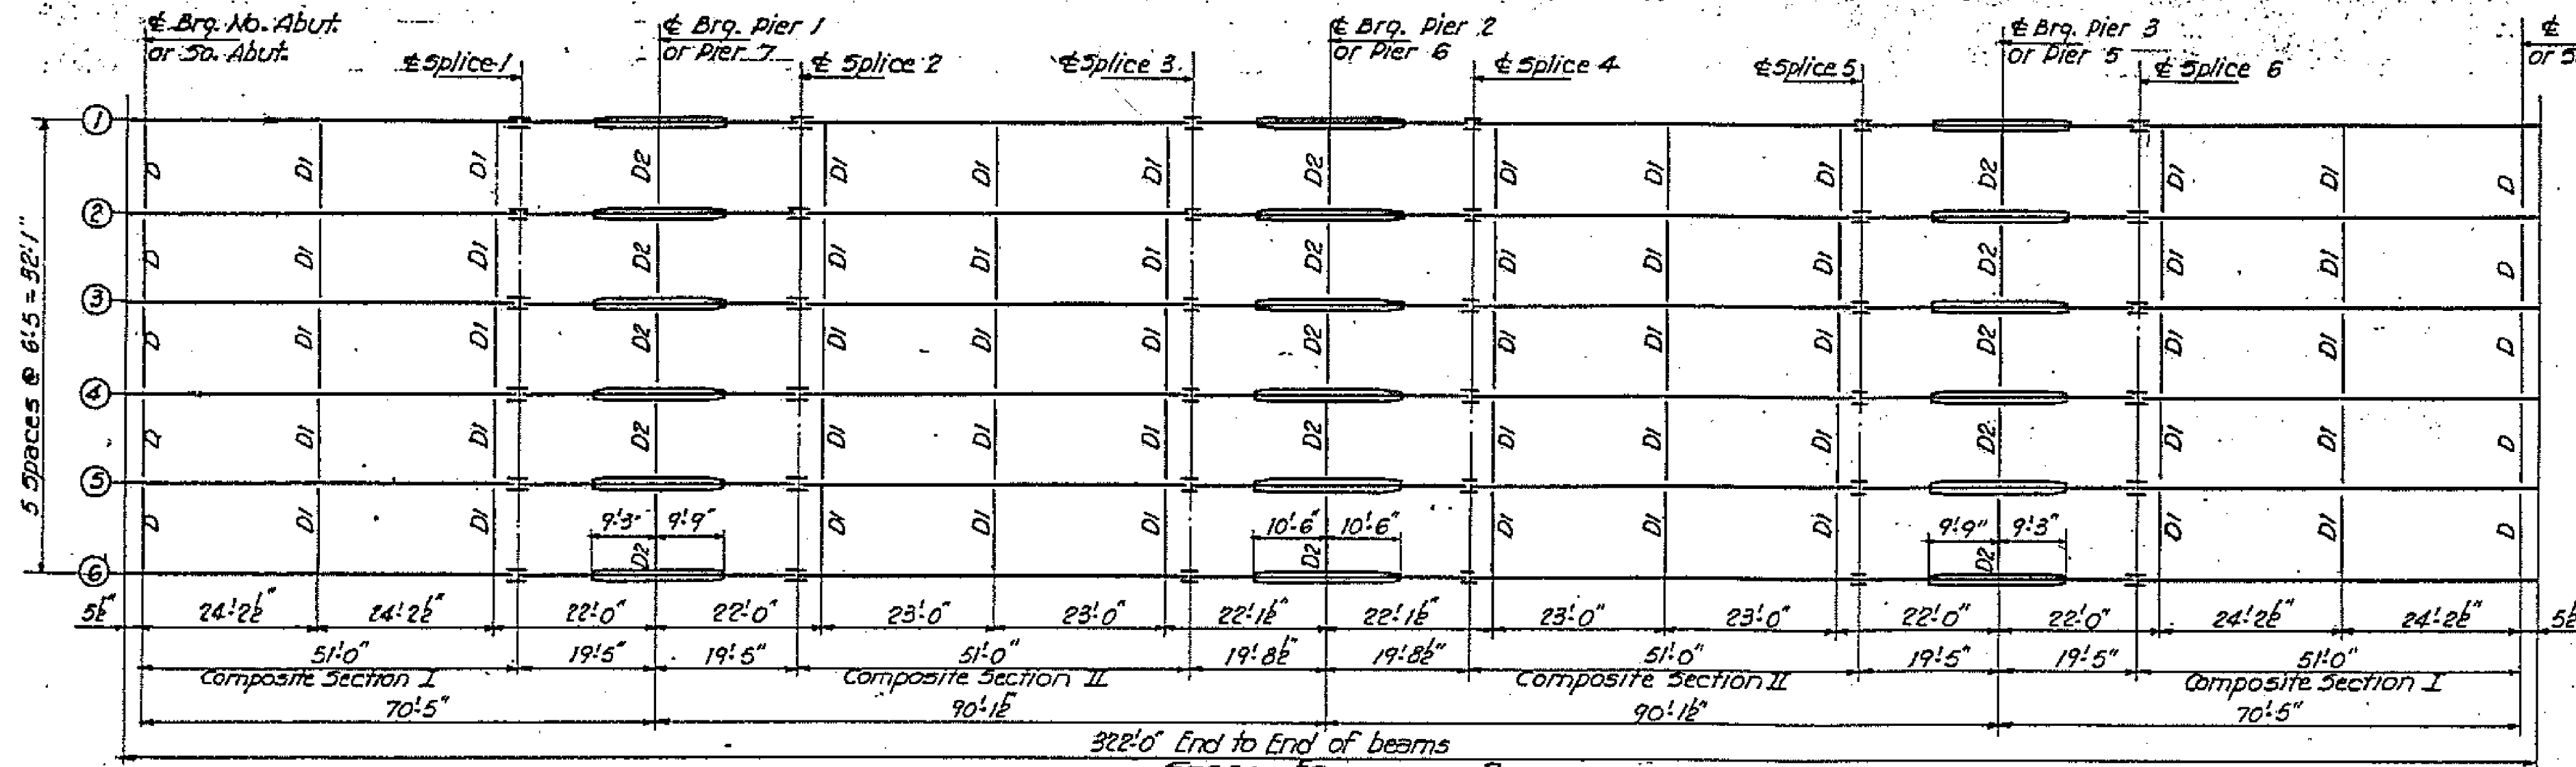 ℄ Brg. No. Abut.
or So. Abut.
℄ Splice 1
℄ Brg. Pier 1
or Pier 7
℄ Splice 2
℄ Splice 3
℄ Brg. Pier 2
or Pier 6
℄ Splice 4
℄ Splice 5
℄ Brg. Pier 3
or Pier 5
℄ Splice 6
℄
1
D D1 D1 D2 D1 D1 D1 D2 D1 D1 D1 D2 D1 D1 D
2
D D1 D1 D2 D1 D1 D1 D2 D1 D1 D1 D2 D1 D1 D
3
D D1 D1 D2 D1 D1 D1 D2 D1 D1 D1 D2 D1 D1 D
4
D D1 D1 D2 D1 D1 D1 D2 D1 D1 D1 D2 D1 D1 D
5
D D1 D1 D2 D1 D1 D1 D2 D1 D1 D1 D2 D1 D1 D
6
5 Spaces @ 6'-5 = 32'-1"
9'-3" 9'-9" 10'-6" 10'-6" 9'-9" 9'-3"
5½" 24'-2½" 24'-2½" 22'-0" 22'-0" 23'-0" 23'-0" 22'-1½" 22'-1½" 23'-0" 23'-0" 22'-0" 22'-0" 24'-2½" 24'-2½"
51'-0" 19'-5" 19'-5" 51'-0" 19'-8½" 19'-8½" 51'-0" 19'-5" 19'-5" 51'-0"
Composite Section I Composite Section II Composite Section II Composite Section I
70'-5" 90'-1½" 90'-1½" 70'-5"
322'-0" End to End of beams